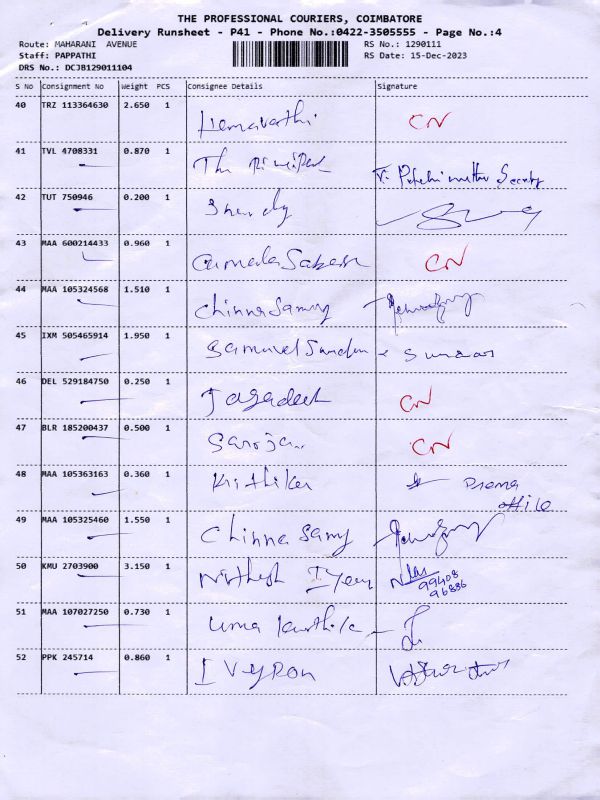 THE PROFESSIONAL COURIERS, COIMBATORE
Delivery Runsheet - P41 - Phone No.:0422-3505555 - Page No.:4
Route: MAHARANI AVENUE RS No.: 1290111
Staff: PAPPATHI RS Date: 15-Dec-2023
DRS No.: DCJB129011104
S No Consignment No Weight PCS Consignee Details Signature
40 TRZ 113364630 2.650 1 Hemavathi CN
41 TVL 4708331 0.870 1 The
42 TUT 750946 0.200 1
43 MAA 600214433 0.960 1 CN
44 MAA 105324568 1.510 1 Chinnasamy
45 IXM 505465914 1.950 1 Samuel Sundar
46 DEL 529184750 0.250 1 Jagadeesh CN
47 BLR 185200437 0.500 1 Saroja CN
48 MAA 105363163 0.360 1 Krithika office
49 MAA 105325460 1.550 1 Chinnasamy
50 KMU 2703900 3.150 1 99408
96886
51 MAA 107027250 0.730 1 Uma
52 PPK 245714 0.860 1